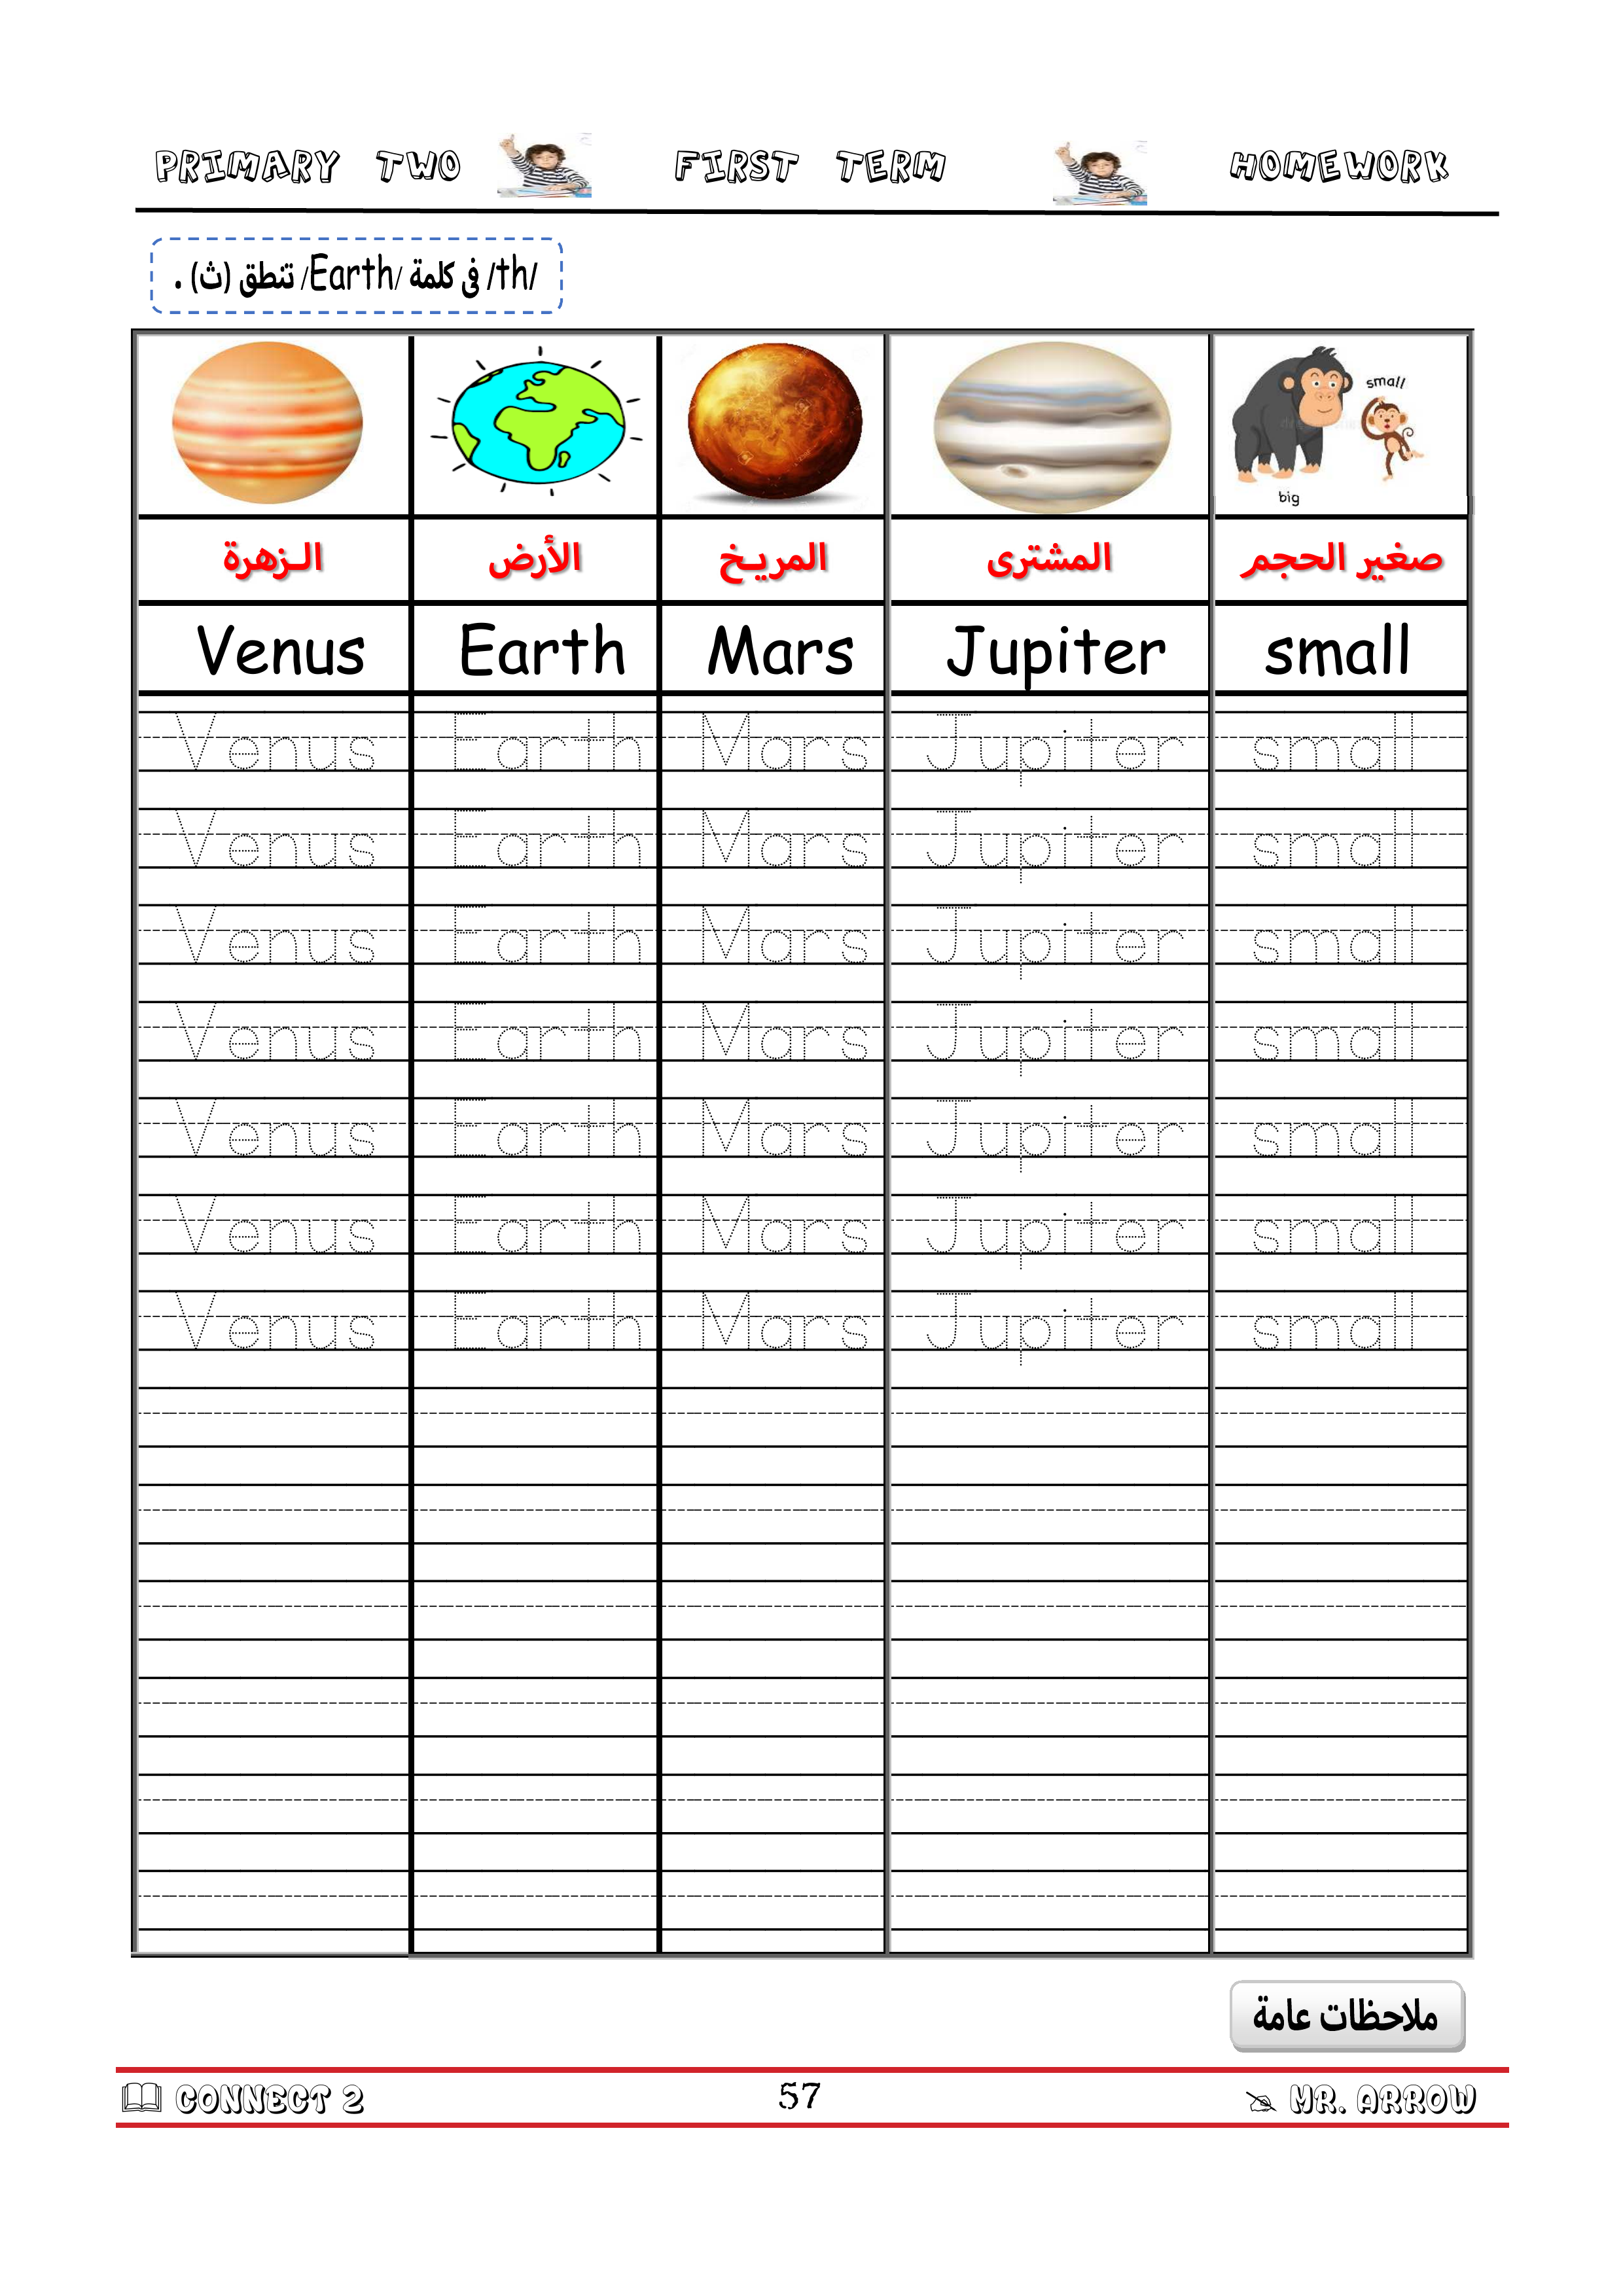 PRIMARY TWO FIRST TERM HOMEWORK
/th/ فى كلمة /Earth/ تنطق (ث) .
small
big
الـزهرة الأرض المريـخ المشترى صغير الحجم
Venus Earth Mars Jupiter small
Venus Earth Mars Jupiter small
Venus Earth Mars Jupiter small
Venus Earth Mars Jupiter small
Venus Earth Mars Jupiter small
Venus Earth Mars Jupiter small
Venus Earth Mars Jupiter small
Venus Earth Mars Jupiter small
ملاحظات عامة
CONNECT 2 57 MR. ARROW